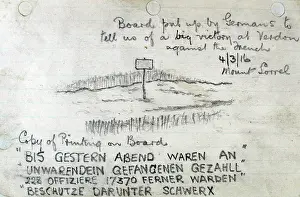 Board put up by Germans to
tell us of a big victory at Verdon
against the French
4/3/16
Mount Sorrel
Copy of Printing on Board
"BIS GESTERN ABEND WAREN AN"
"UNWARENDEIN GEFANGENEN GEZAHLL
"228 OFFIZIERE 17370 FERNER WARDEN"
"BESCHUTZE DARUNTER SCHWERX